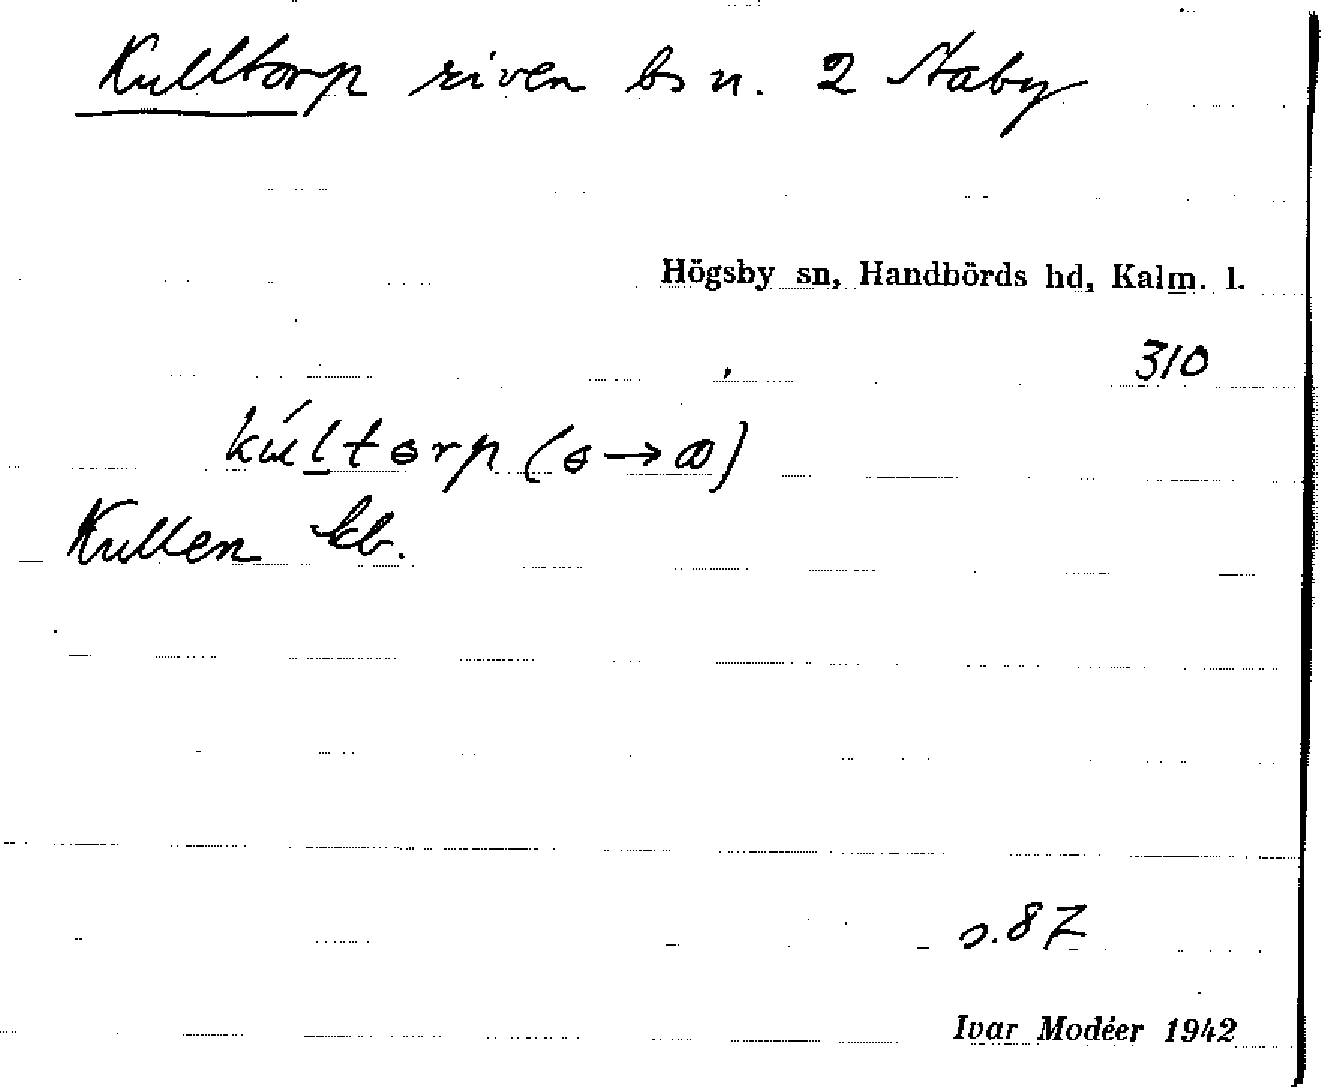 Kulltorp riven bs n. 2 Staby
Högsby sn, Handbörds hd, Kalm. l.
310
kúltɵrp (ɵ→ꚙ)
Kullen kb.
s. 87
Ivar Modéer 1942